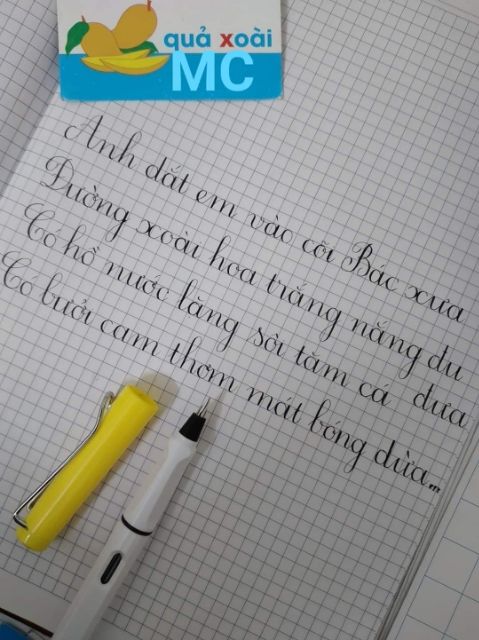 quả xoài
MC
Anh dắt em vào cõi Bác xưa
Đường xoài hoa trắng nắng đu
Có hồ nước lặng sôi tăm cá dưa
Có bưởi cam thơm mát bóng dừa...